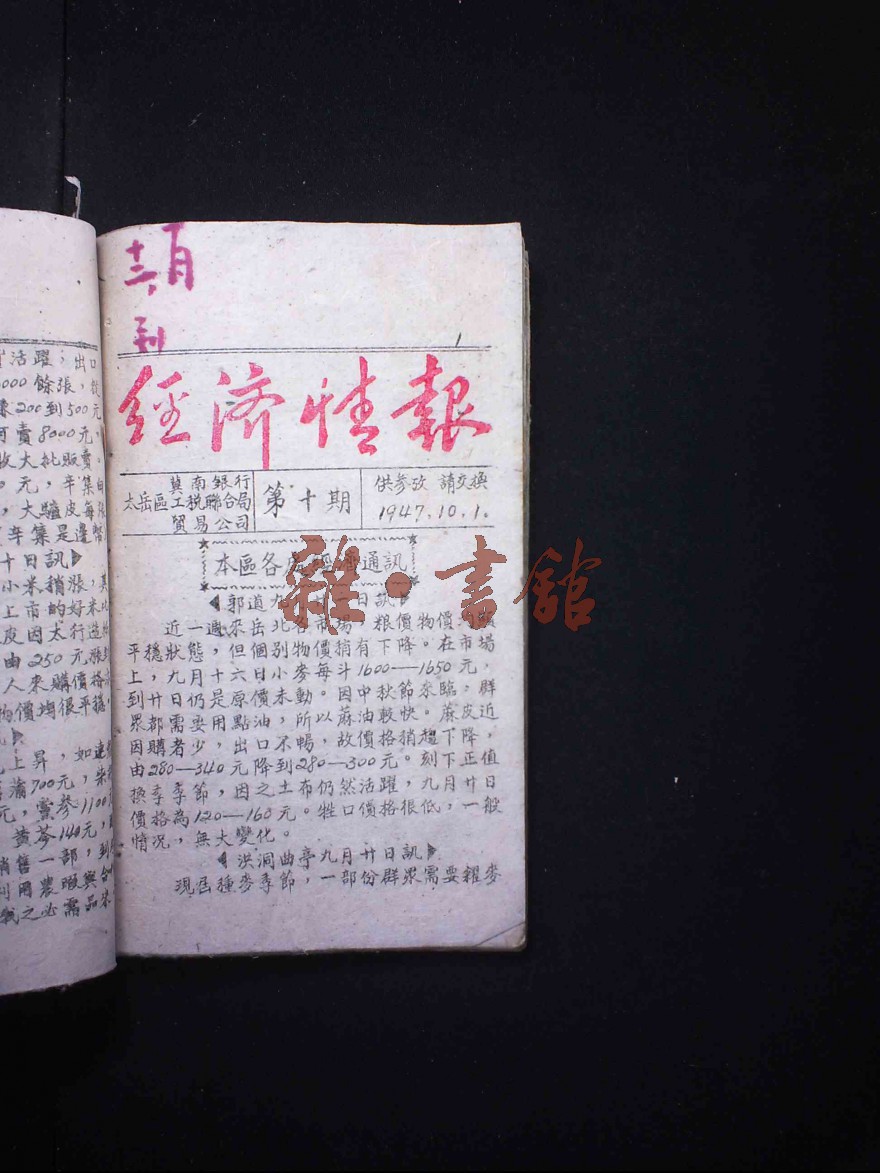 活躍；出口
000餘張，
200到500元
賣8000元，
收大批販賣。
元，辛集
，大驢皮每張
辛集是邊幣
十日訊
小米稍漲，
上市的好米比
皮因太行造
由250元漲到
人來購價格
物價均很平穩，
上昇，如連
蒲700元，柴
元，黨參1100
黃芩140元，
銷售一部，到
利用農暇與
戰之必需品
十二月
三日到
1
經濟情報
冀南銀行
太岳區工稅聯合局
貿易公司
第十期
供參攷 請交換
1947.10.1.
本區各處經濟通訊
郭道九月廿一日訊
近一週來岳北各市場，粮價物價均呈
平穩狀態，但個別物價稍有下降。在市場
上，九月十六日小麥每斗1600—1650元，
到廿日仍是原價未動。因中秋節來臨，群
眾都需要用點油，所以蔴油較快。蔴皮近
因購者少，出口不暢，故價格稍趨下降，
由280—340元降到280—300元。刻下正值
換季季節，因之土布仍然活躍，九月廿日
價格為120—160元。牲口價格很低，一般
情況，無大變化。
洪洞曲亭九月廿日訊
現屆種麥季節，一部份群眾需要糴麥
雜·書館